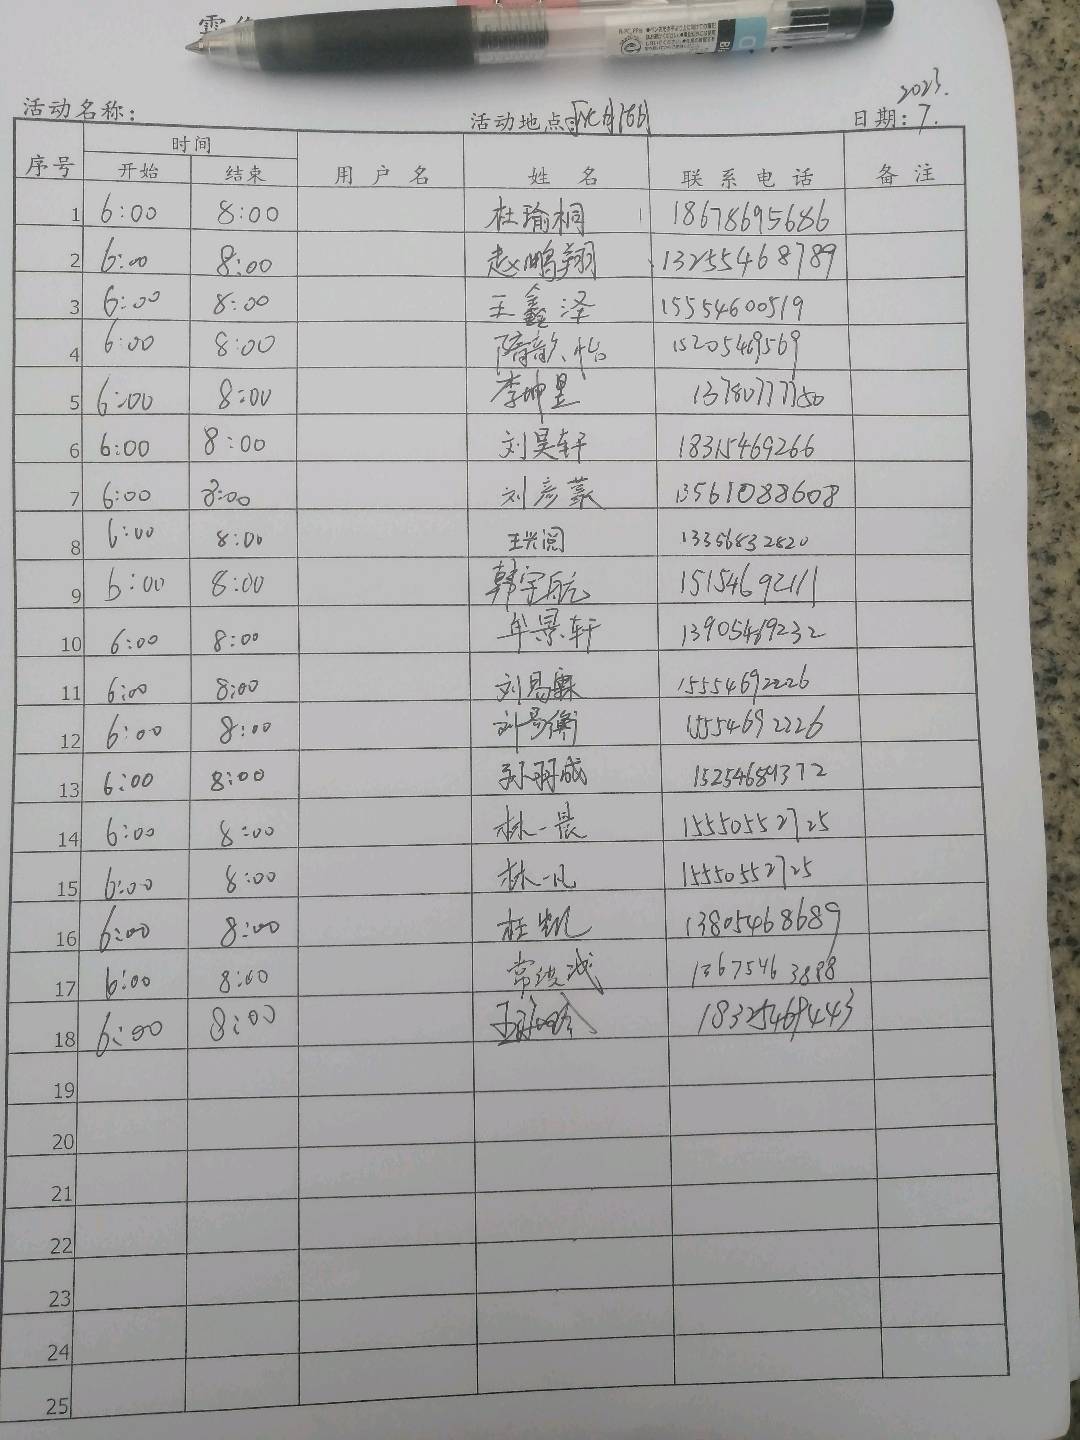 活动名称:
活动地点:
2023.
日期: 7.
序号 时间 用户名 姓名 联系电话 备注
开始 结束
1 6:00 8:00 杜瑜桐 18678695686
2 6:00 8:00 赵鹏翔 13255468789
3 6:00 8:00 王鑫泽 15554600519
4 6:00 8:00 隋歆怡 15205469569
5 6:00 8:00 李坤昱 13780777750
6 6:00 8:00 刘昊轩 18315469266
7 6:00 8:00 刘彦蒙 13561088608
8 6:00 8:00 王兴阅 13356832820
9 6:00 8:00 韩宇航 15154692111
10 6:00 8:00 牟景轩 13905469232
11 6:00 8:00 刘易霖 15554692226
12 6:00 8:00 刘易衡 15554692226
13 6:00 8:00 15254689372
14 6:00 8:00 林一晨 15550552725
15 6:00 8:00 林一凡 15550552725
16 6:00 8:00 杜凯 13805468689
17 6:00 8:00 13675463888
18 6:00 8:00 18325469443
19
20
21
22
23
24
25